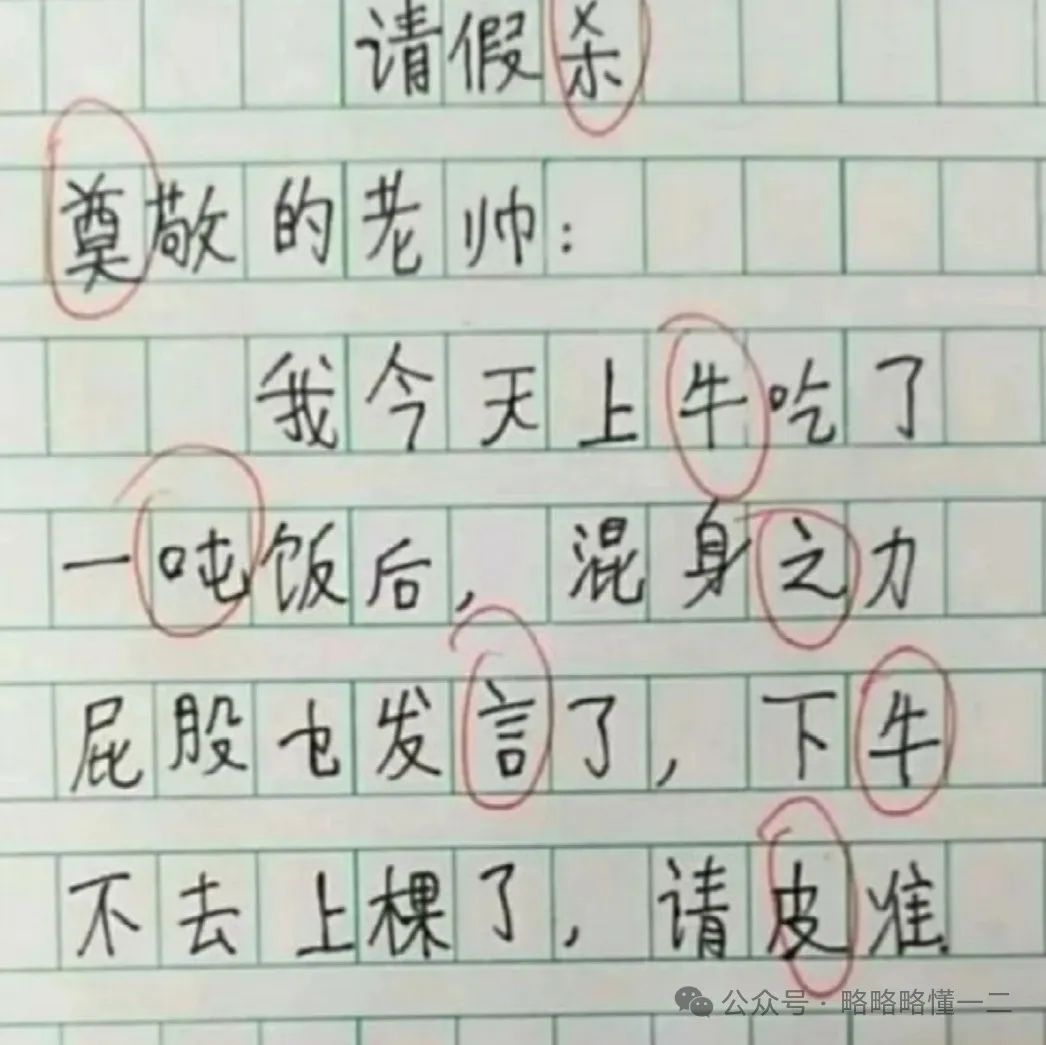 请假杀
奠敬的老帅：
我今天上牛吃了
一吨饭后，混身之力
屁股也发言了，下牛
不去上棵了，请皮准
公众号·略略略懂一二